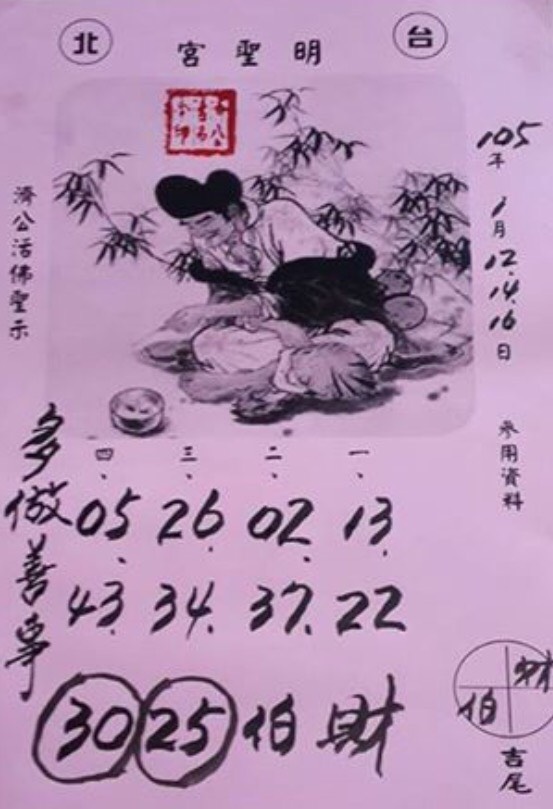 台北
明聖宮
105年1月12.14.16日
參用資料
濟公活佛聖示
一、二、三、四、
13. 02. 26. 05.
22 37. 34. 43.
財伯 25 30
多做善事
財
伯
吉尾